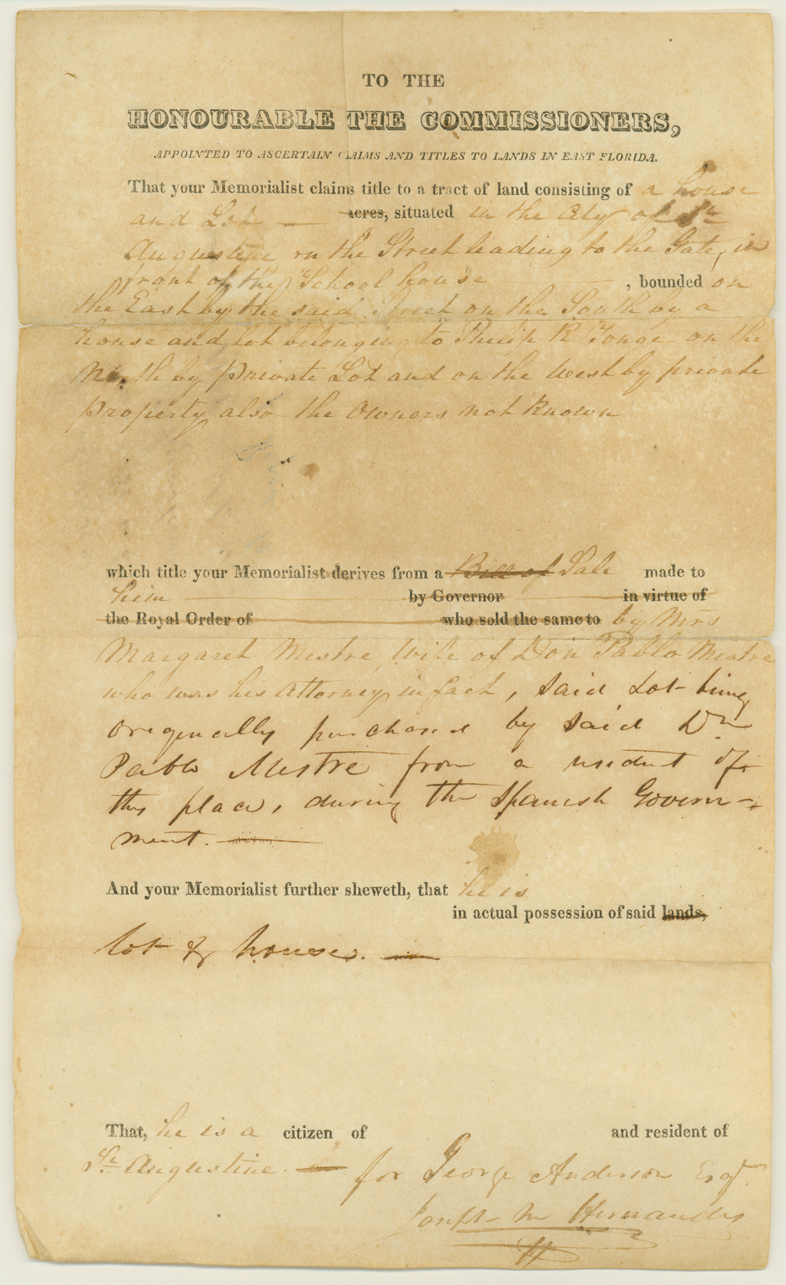 TO THE
HONOURABLE THE COMMISSIONERS,
APPOINTED TO ASCERTAIN CLAIMS AND TITLES TO LANDS IN EAST FLORIDA.
That your Memorialist claims title to a tract of land consisting of a house
and Lot — acres, situated in the City of St
Augustine on the Street leading to the Gate, in
front of the School house , bounded on
the East by the said Street on the South by a
house and lot belonging to Philip R Yonge on the
North by private Lot and on the West by private
property also the Owners not known
which title your Memorialist derives from a Bill of Sale made to
him by Governor in virtue of
the Royal Order of who sold the same to by Mrs
Margaret Mestre, Wife of Don Pablo Mestre
who was his Attorney in fact, said Lot being
originally purchased by said Dn
Pablo Mestre from a resident of
this place, during the Spanish Govern-
ment. —
And your Memorialist further sheweth, that he is
in actual possession of said lands,
lot & house. —
That, he is a citizen of and resident of
St Augustine — for George Anderson Esqr.
Joseph M Hernandez